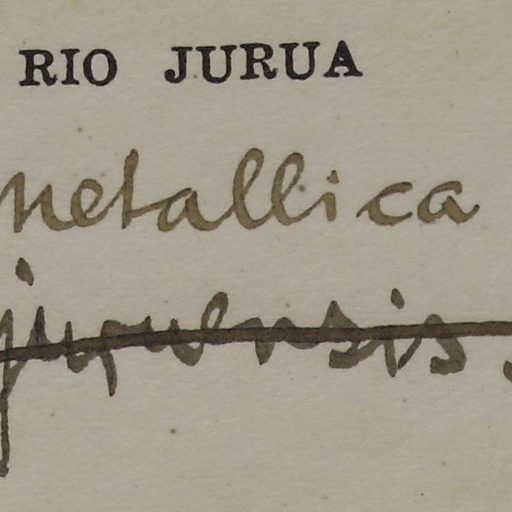 RIO JURUA
metallica
juruensis.